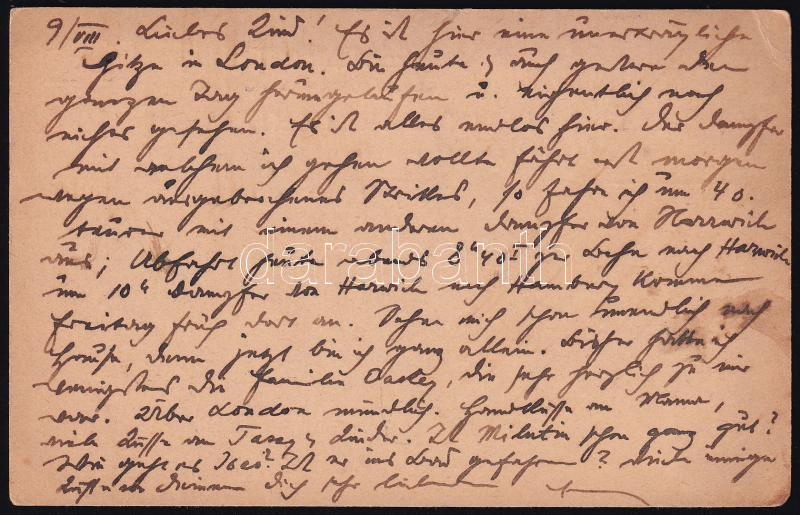 9/VIII. Liebes Kind! Es ist hier eine unerträgliche
Hitze in London. Bin heute u. auch gestern den
ganzen Tag herumgelaufen u. eigentlich noch
nichts gesehen. Es ist alles endlos hier. Der Dampfer
mit welchem ich gehen wollte fährt erst morgen
wegen ausgebrochenes Strikes, so fahre ich um 40.
teurer mit einem anderen Dampfer von Harrwich
aus; Abfahrt heute abends 8h40 per Bahn nach Harwich
um 10h Dampfer von Harwich nach Hamburg komme
Freitag früh dort an. Sehne mich schon unendlich nach
Hause, denn jetzt bin ich ganz allein. Bisher hatte ich
wenigstens die Familie, die sehr herzlich zu mir
war. Über London mündlich. Handküsse an Mama,
viele Küsse an Kinder. Ist Milutin schon ganz gut?
Wie geht es Ist er ins Bad gefahren? viele innige
Küsse von deinem dich sehr liebenden
darabanth